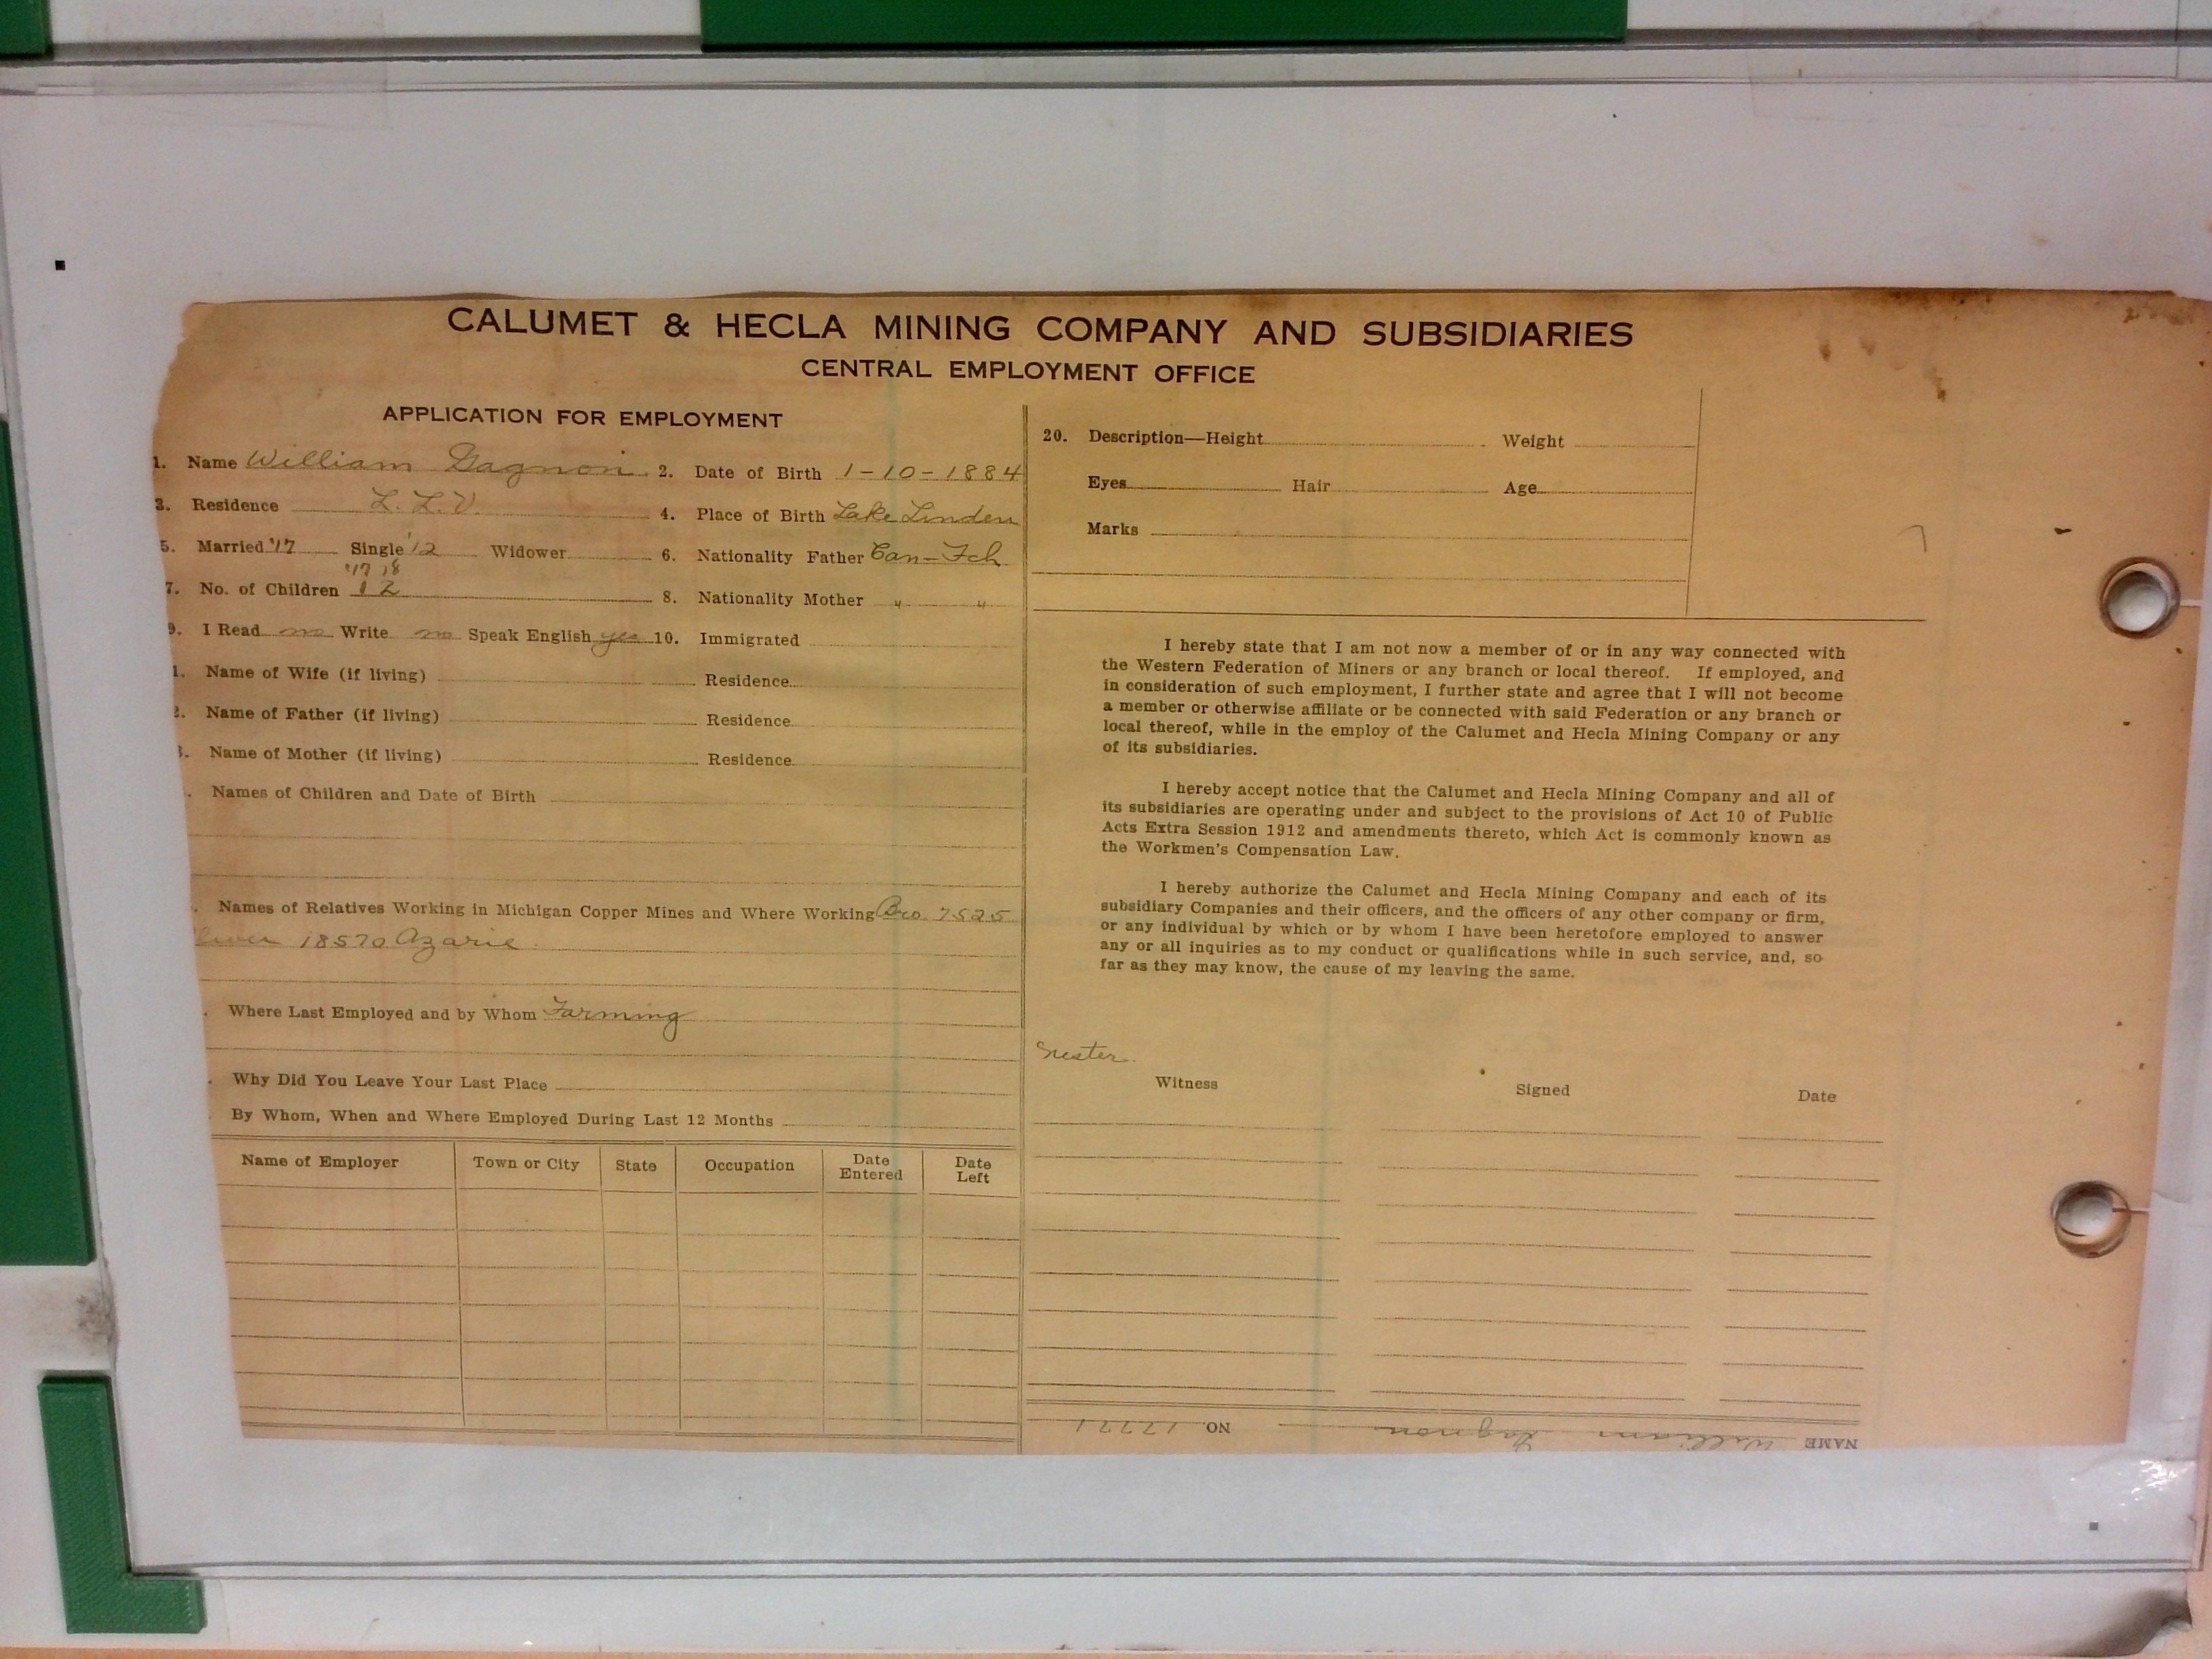 CALUMET & HECLA MINING COMPANY AND SUBSIDIARIES
CENTRAL EMPLOYMENT OFFICE
APPLICATION FOR EMPLOYMENT
1. Name William Gagnon 2. Date of Birth 1-10-1884
3. Residence L.L.V. 4. Place of Birth Lake Linden
5. Married '17 Single '12 Widower 6. Nationality Father Can-Fch
'17 18
7. No. of Children 1 2 8. Nationality Mother " "
9. I Read no Write no Speak English yes 10. Immigrated
1. Name of Wife (if living) Residence
2. Name of Father (if living) Residence
3. Name of Mother (if living) Residence
. Names of Children and Date of Birth
. Names of Relatives Working in Michigan Copper Mines and Where Working Bro. 7525
18570 Azarie
. Where Last Employed and by Whom Farming
. Why Did You Leave Your Last Place
. By Whom, When and Where Employed During Last 12 Months
Name of Employer Town or City State Occupation Date Entered Date Left
20. Description—Height Weight
Eyes Hair Age
Marks
I hereby state that I am not now a member of or in any way connected with
the Western Federation of Miners or any branch or local thereof. If employed, and
in consideration of such employment, I further state and agree that I will not become
a member or otherwise affiliate or be connected with said Federation or any branch or
local thereof, while in the employ of the Calumet and Hecla Mining Company or any
of its subsidiaries.
I hereby accept notice that the Calumet and Hecla Mining Company and all of
its subsidiaries are operating under and subject to the provisions of Act 10 of Public
Acts Extra Session 1912 and amendments thereto, which Act is commonly known as
the Workmen's Compensation Law.
I hereby authorize the Calumet and Hecla Mining Company and each of its
subsidiary Companies and their officers, and the officers of any other company or firm,
or any individual by which or by whom I have been heretofore employed to answer
any or all inquiries as to my conduct or qualifications while in such service, and, so
far as they may know, the cause of my leaving the same.
Witness Signed Date
NAME William Gagnon NO. 17771